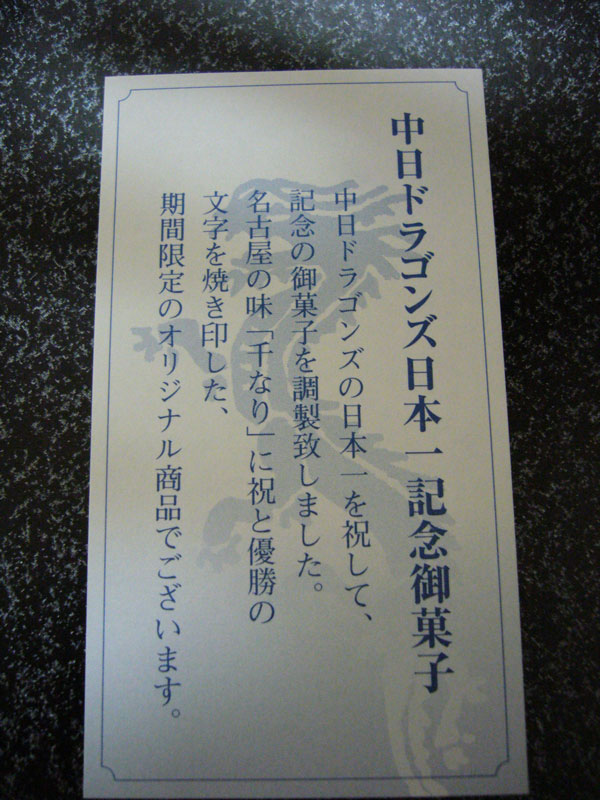 中日ドラゴンズ日本一記念御菓子
中日ドラゴンズの日本一を祝して、
記念の御菓子を調製致しました。
名古屋の味「千なり」に祝と優勝の
文字を焼き印した、
期間限定のオリジナル商品でございます。